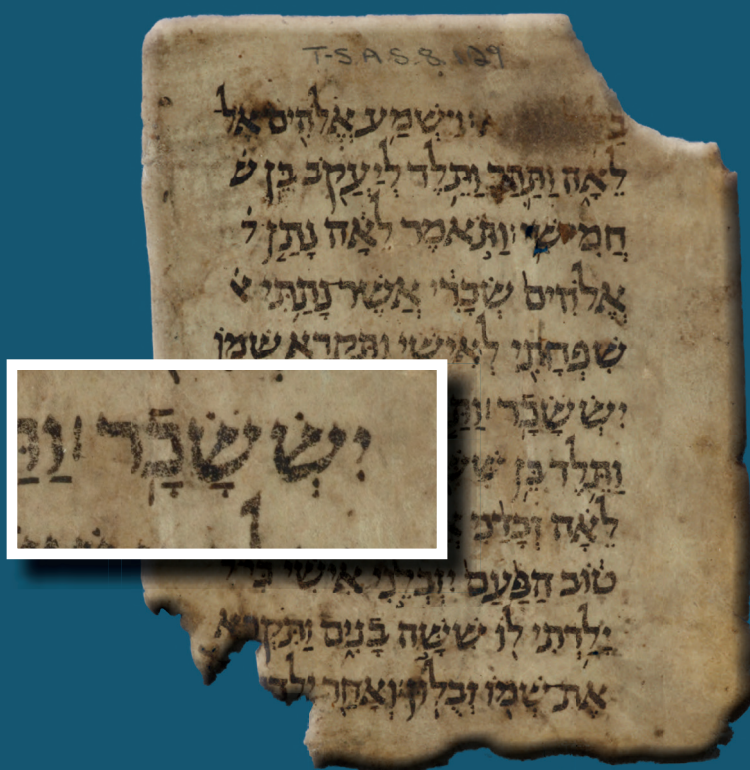 T-S. A.S. 8. 129
וַיִּשְׁמַע אֱלֹהִים אֶל
לֵאָה וַתַּהַר וַתֵּלֶד לְיַעֲקֹב בֵּן
חֲמִישִׁי׃ וַתֹּאמֶר לֵאָה נָתַן
אֱלֹהִים שְׂכָרִי אֲשֶׁר־נָתַתִּי
שִׁפְחָתִי לְאִישִׁי וַתִּקְרָא שְׁמוֹ
יִשְׂשָׂכָֿר׃ וַתַּ
וַתֵּלֶד בֵּן
לֵאָה
טוֹב הַפַּעַם יִזְבְּלֵנִי אִישִׁי כִּי
יָלַדְתִּי לוֹ שִׁשָּׁה בָנִים וַתִּקְרָא
אֶת־שְׁמוֹ זְבֻלוּן׃ וְאַחַר
יִשְׂשָׂכָֿר׃ וַתַּ